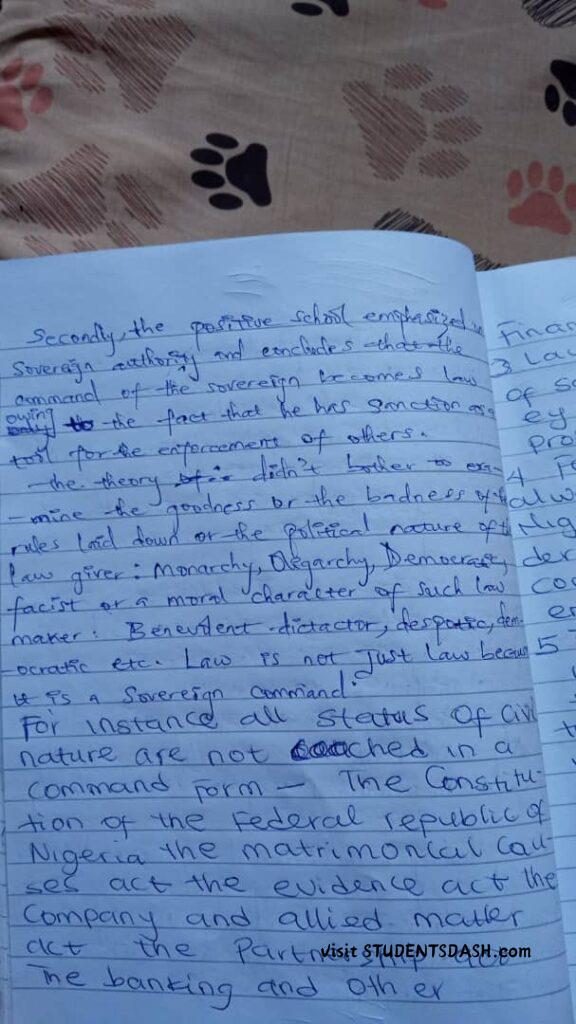 Secondly, the positive school emphasized
Sovereign authority and concludes that the
command of the sovereign becomes law
owing to the fact that he has sanction as a
tool for the enforcement of others.
the theory didn't bother to exa-
-mine the goodness or the badness of the
rules laid down or the political nature of the
law giver: Monarchy, Olegarchy, Democratic,
facist or a moral character of such law
maker: Benevelent dictactor, despotic, dem-
-ocratic etc. Law is not Just law because
it is a Sovereign command.
For instance all status of Civil
nature are not coached in a
command form - The Constitu-
tion of the Federal republic of
Nigeria the matrimonial cau-
ses act the evidence act the
Company and allied matter
act the Partnership act
The banking and other
Finan
3 Law
of So
ey
pro
4 F
alw
Nig
der
co
en
5 T
visit STUDENTSDASH.com